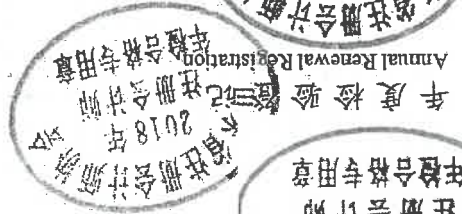 注册会计师
年检合格专用章
年度检验登记
Annual Renewal Registration
省注册会计师协会
2018年
注册会计师
年检合格专用章
省注册会计师